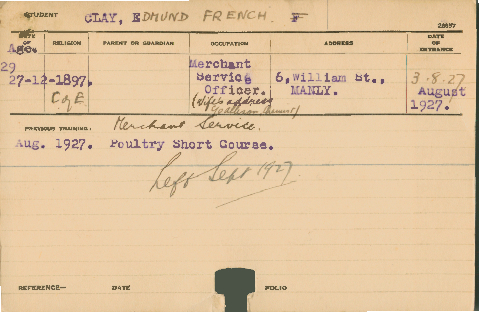 STUDENT CLAY, EDMUND FRENCH. F
26657
DATE OF Age. RELIGION PARENT OR GUARDIAN OCCUPATION ADDRESS DATE OF ENTRANCE
29
27-12-1897. C of E Merchant Service Officer. 6, William St., MANLY. 3-8-27 August 1927.
(Wife's address
PREVIOUS TRAINING: Merchant Service.
Aug. 1927. Poultry Short Course.
Left Sept 1927
REFERENCE— DATE FOLIO